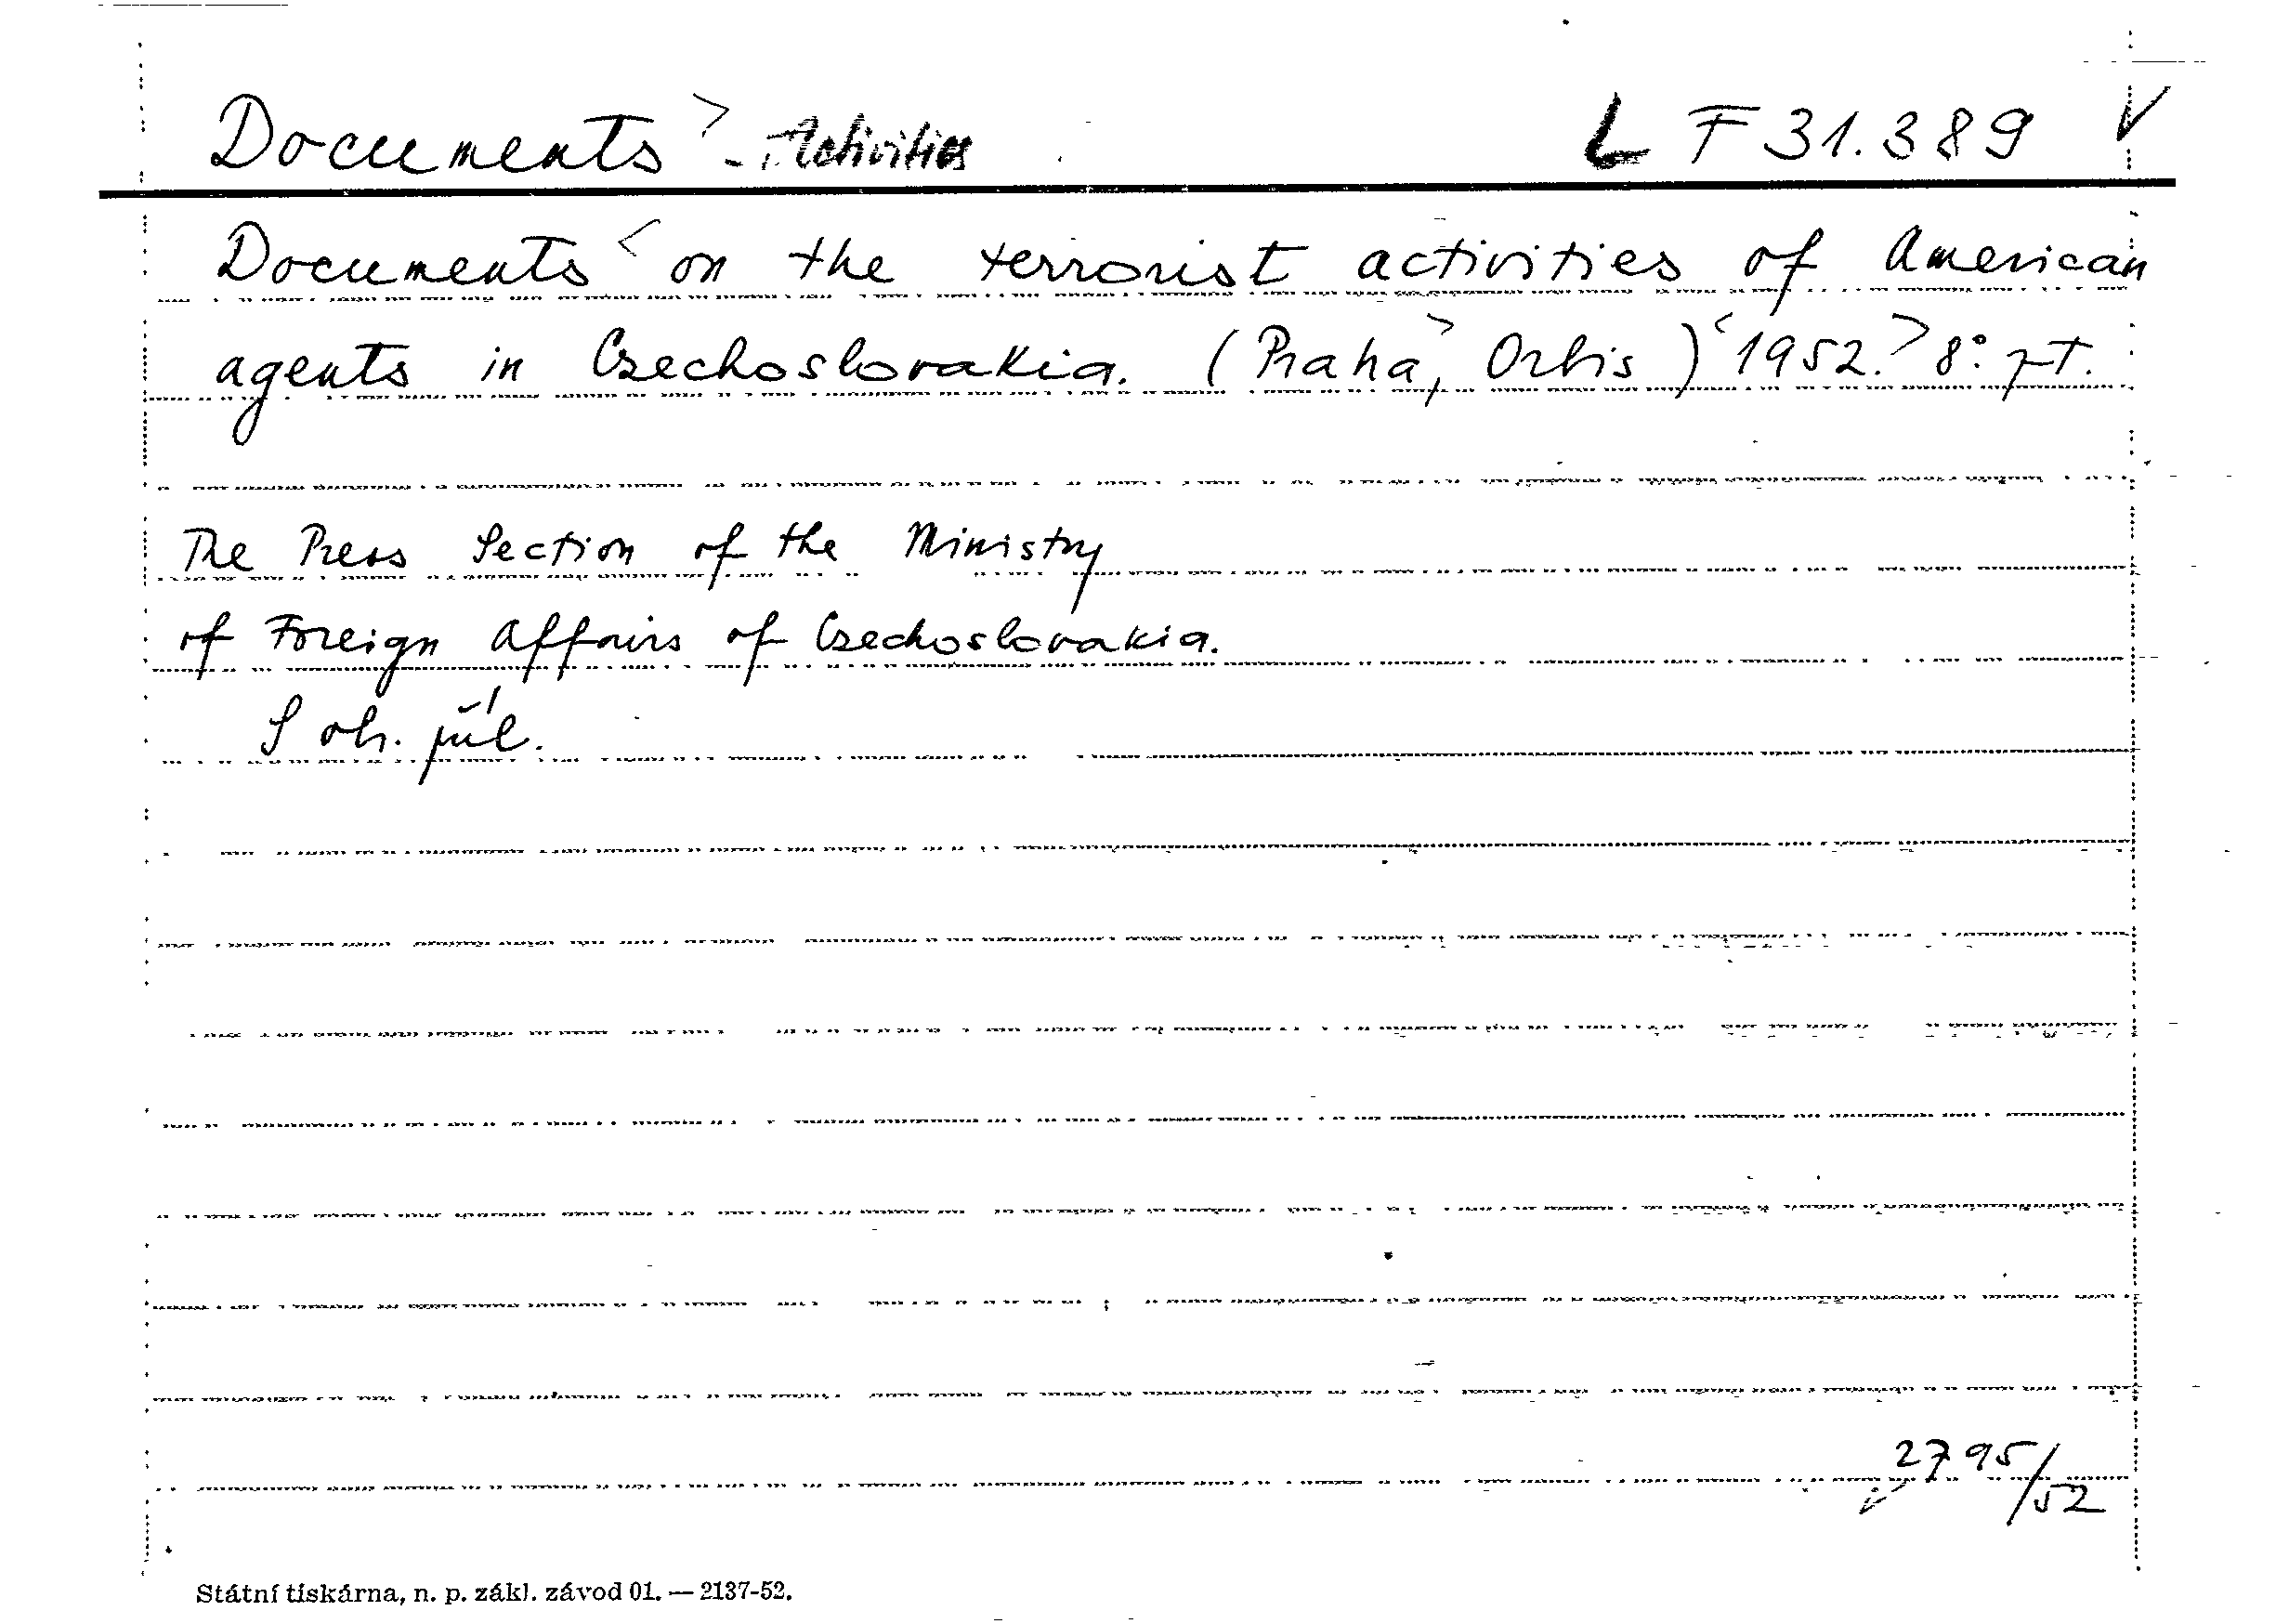 Documents > - Activities L F 31.389 V
Documents < on the terrorist activities of American
agents in Czechoslovakia. (Praha, > Orbis) < 1952. > 8°.
The Press Section of the Ministry
of Foreign Affairs of Czechoslovakia.
S ob. příl.
2795/52
Státní tiskárna, n. p. zákl. závod 01. — 2137-52.